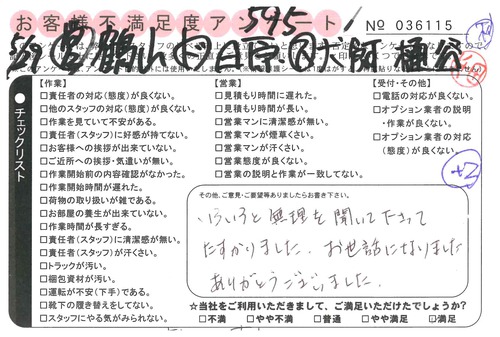 お客様不満足度アンケート
545
No 036115
5/29
【作業】
□責任者の対応(態度)が良くない。
□他のスタッフの対応(態度)が良くない。
□作業を見ていて不安がある。
□責任者(スタッフ)に好感が持てない。
□お客様への挨拶が出来ていない。
□ご近所への挨拶・気遣いが無い。
□作業開始前の内容確認がなかった。
□作業開始時間が遅れた。
□荷物の取り扱いが雑である。
□お部屋の養生が出来ていない。
□作業時間が長すぎる。
□責任者(スタッフ)に清潔感が無い。
□責任者(スタッフ)が汗くさい。
□トラックが汚い。
□梱包資材が汚い。
□運転が不安(下手)である。
□靴下の履き替えをしてない。
□スタッフにやる気がみられない。
【営業】
□見積もり時間に遅れた。
□見積もり時間が長い。
□営業マンに清潔感が無い。
□営業マンが煙草くさい。
□営業マンが汗くさい。
□営業態度が良くない。
□営業の説明と作業が一致してない。
【受付・その他】
□電話の対応が良くない。
□オプション業者の説明
・作業が良くない。
□オプション業者の対応
(態度)が良くない。
+2
●チェックリスト
その他、ご意見・ご要望等ありましたらお書き下さい。
いろいろと無理を聞いて下さって
たすかりました。お世話になりました
ありがとうございました。
☆当社をご利用いただきまして、ご満足いただけたでしょうか?
□不満 □やや不満 □普通 □やや満足 ☑満足